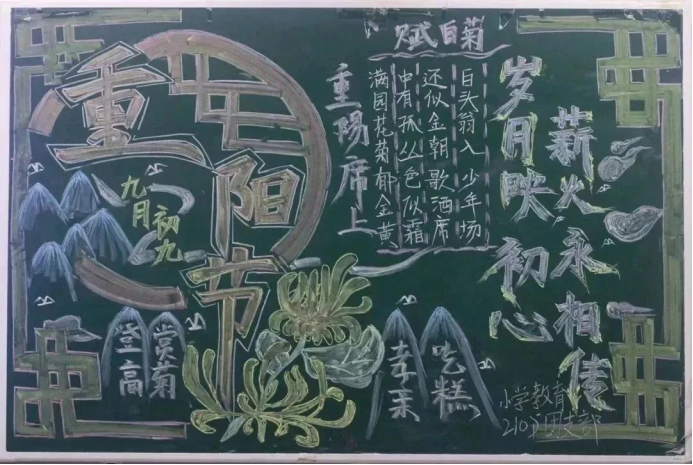 重阳节
九月
初九
重陽席上
赋白菊
满园花菊郁金黄
中有孤丛色似霜
还似金朝歌洒席
白头翁入少年场
岁月映初心
薪火永相传
登高
赏菊
孝亲
吃糕
小学教育
团支部